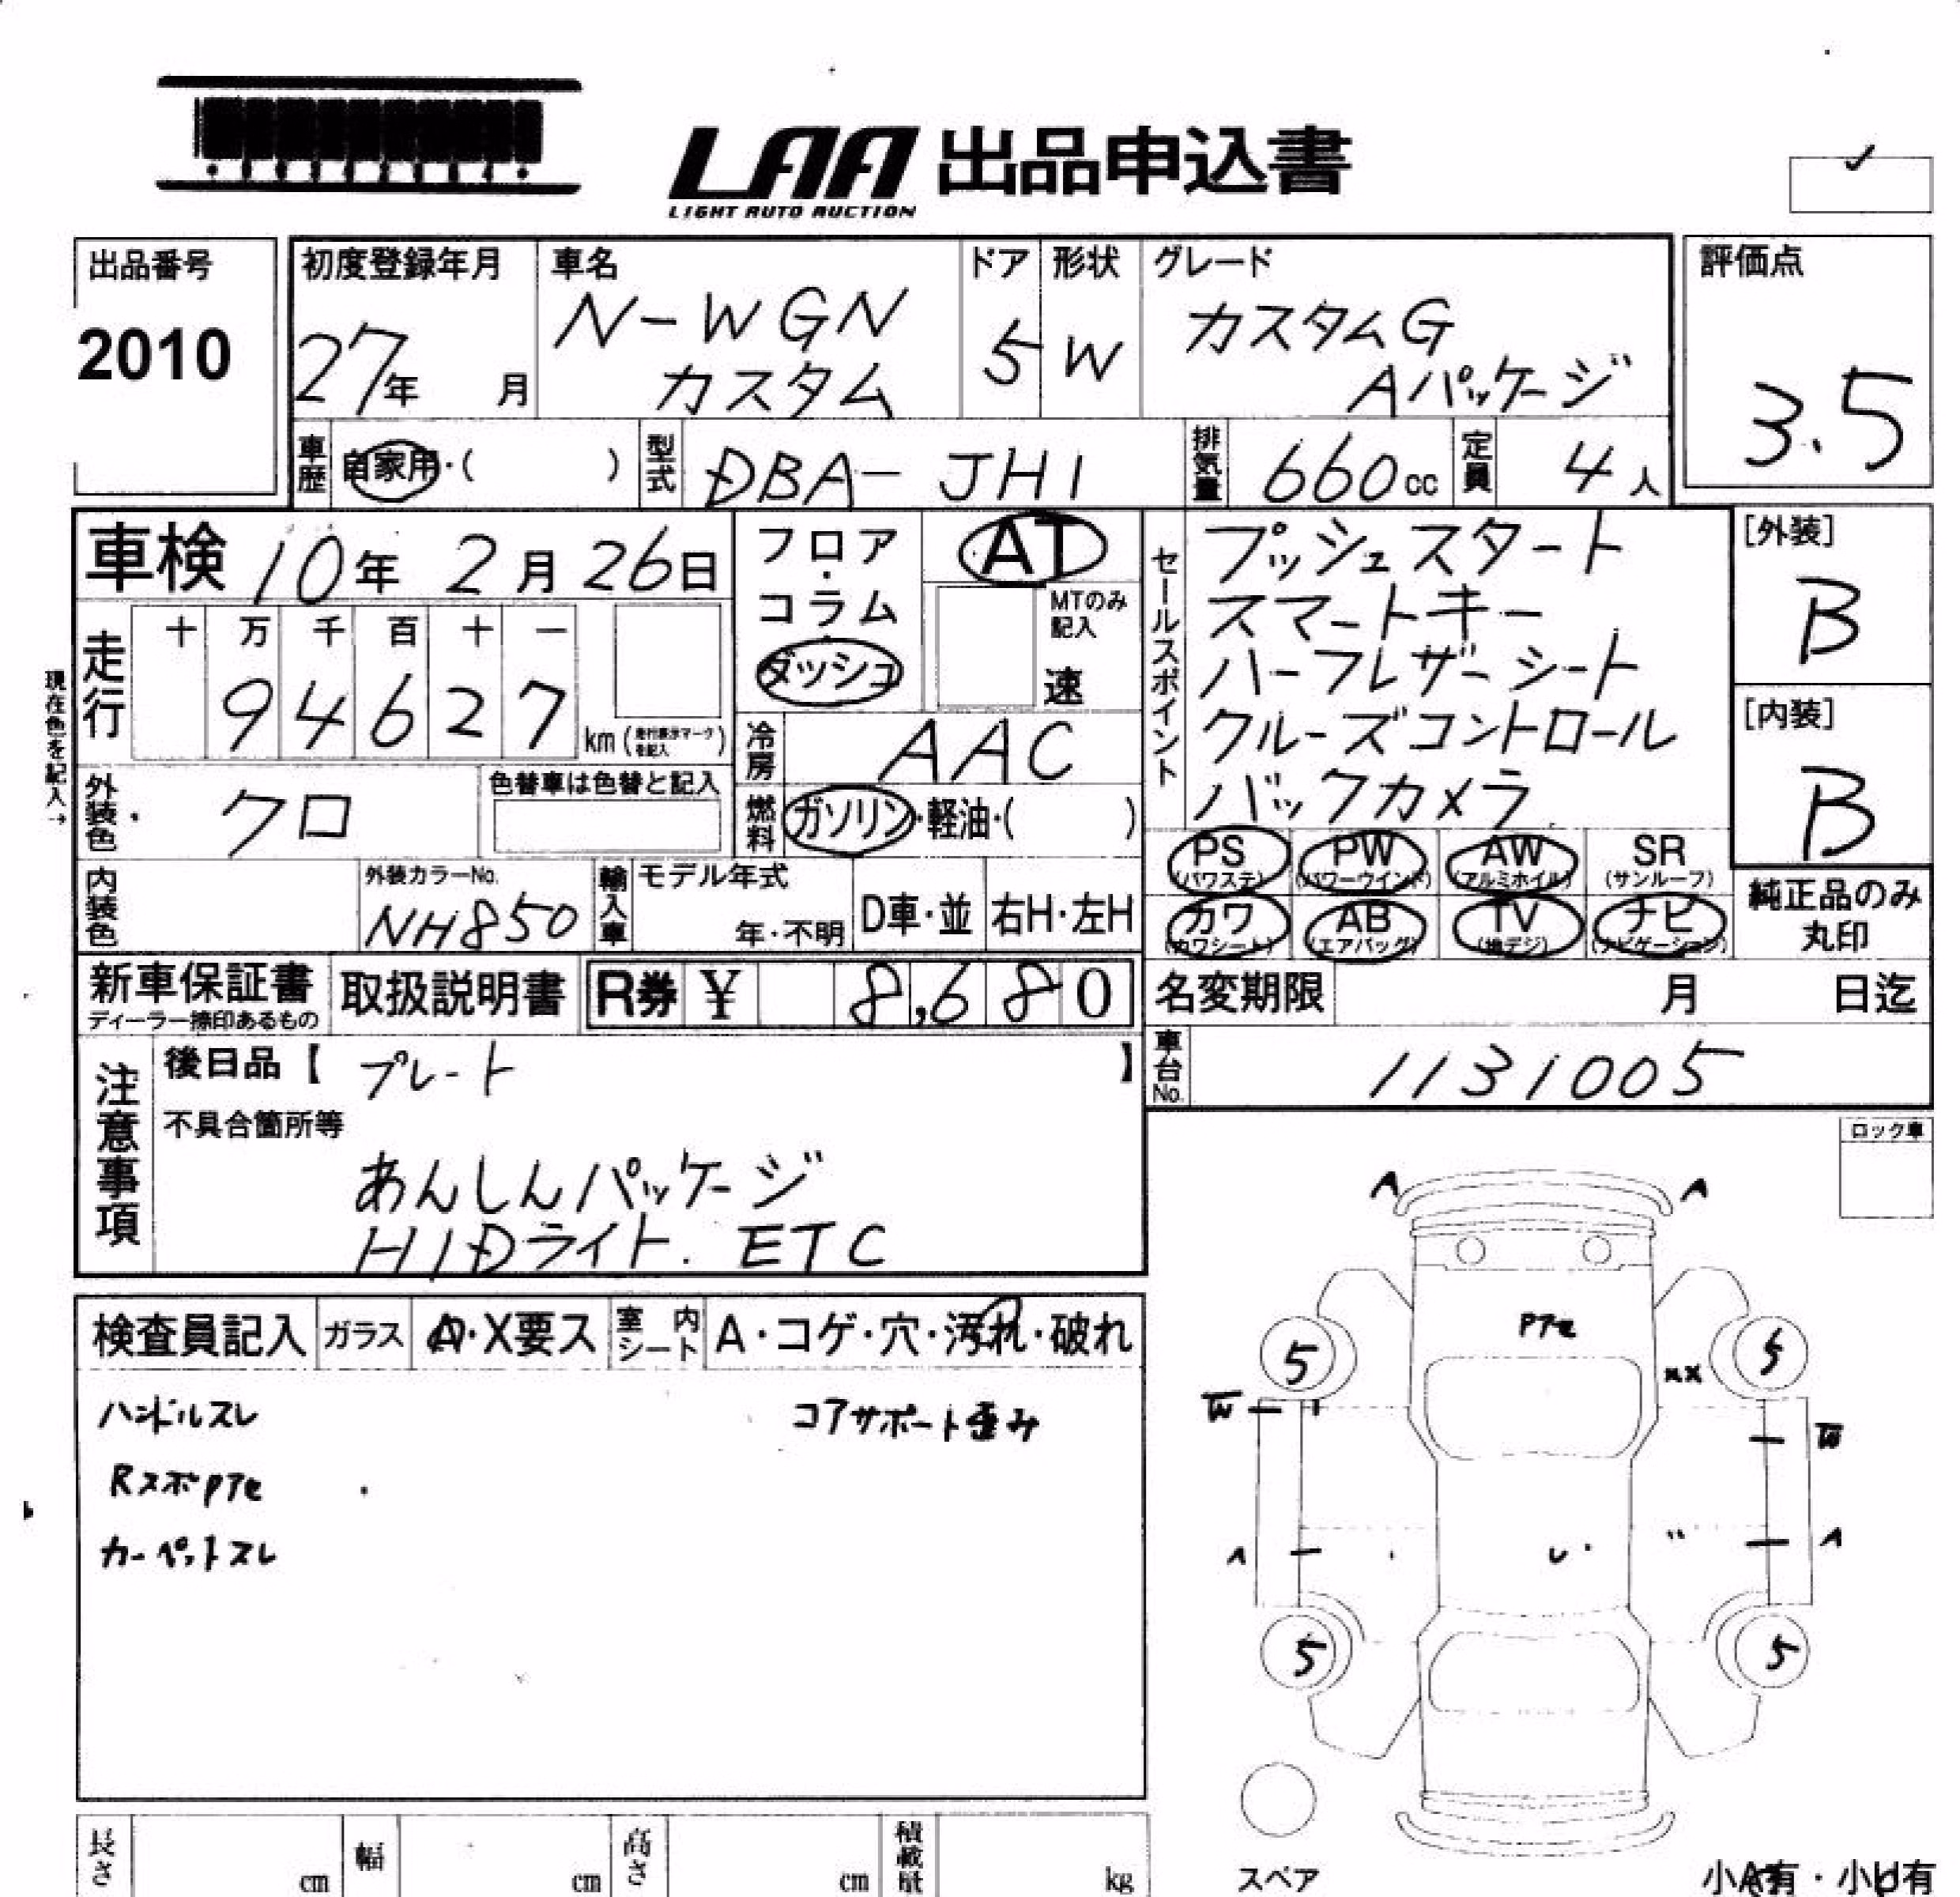 LAA 出品申込書
LIGHT AUTO AUCTION
出品番号
2010
初度登録年月
27年 月
車名
N-WGN
カスタム
ドア
5
形状
W
グレード
カスタムG
Aパッケージ
評価点
3.5
車歴 自家用・( )
型式 DBA-JH1
排気量 660cc
定員 4人
車検 10年 2月 26日
フロア・コラム・ダッシュ
AT
MTのみ記入
速
セールスポイント
プッシュスタート
スマートキー
ハーフレザーシート
クルーズコントロール
バックカメラ
[外装]
B
[内装]
B
現在色を記入→
走行
十 万 千 百 十 一
9 4 6 2 7
km(走行表示マークを記入)
冷房 AAC
外装色 クロ
色替車は色替と記入
燃料 ガソリン・軽油・( )
PS (パワステ)
PW (パワーウインド)
AW (アルミホイル)
SR (サンルーフ)
カワ (カワシート)
AB (エアバッグ)
TV (地デジ)
ナビ (ナビゲーション)
純正品のみ
丸印
内装色
外装カラーNo.
NH850
輸入車
モデル年式
年・不明
D車・並
右H・左H
新車保証書
ディーラー捺印あるもの
取扱説明書
R券 ¥ 8,680
名変期限 月 日迄
車台No. 1131005
注意事項
後日品【 プレート 】
不具合箇所等
あんしんパッケージ
HIDライト. ETC
ロック車
検査員記入
ガラス A・X要ス
室内シート A・コゲ・穴・汚れ・破れ
ハンドルスレ
コアサポート歪み
RスポPTe
カーペットスレ
A A
PTe
5 5
XX
W W
A U A
5 5
スペア
長さ cm
幅 cm
高さ cm
積載量 kg
小A有・小U有